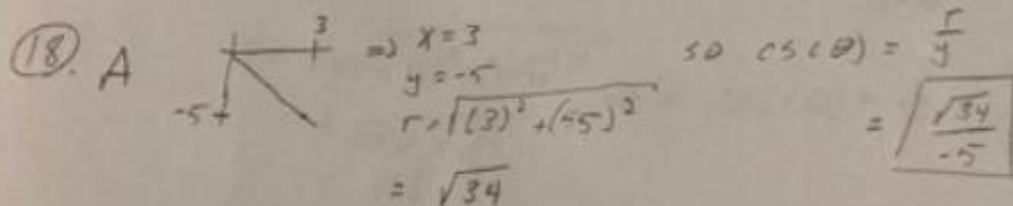 18. A
3
-5
=> x = 3
y = -5
r = √((3)² + (-5)²)
= √34
so csc(θ) = r/y
= √34/-5